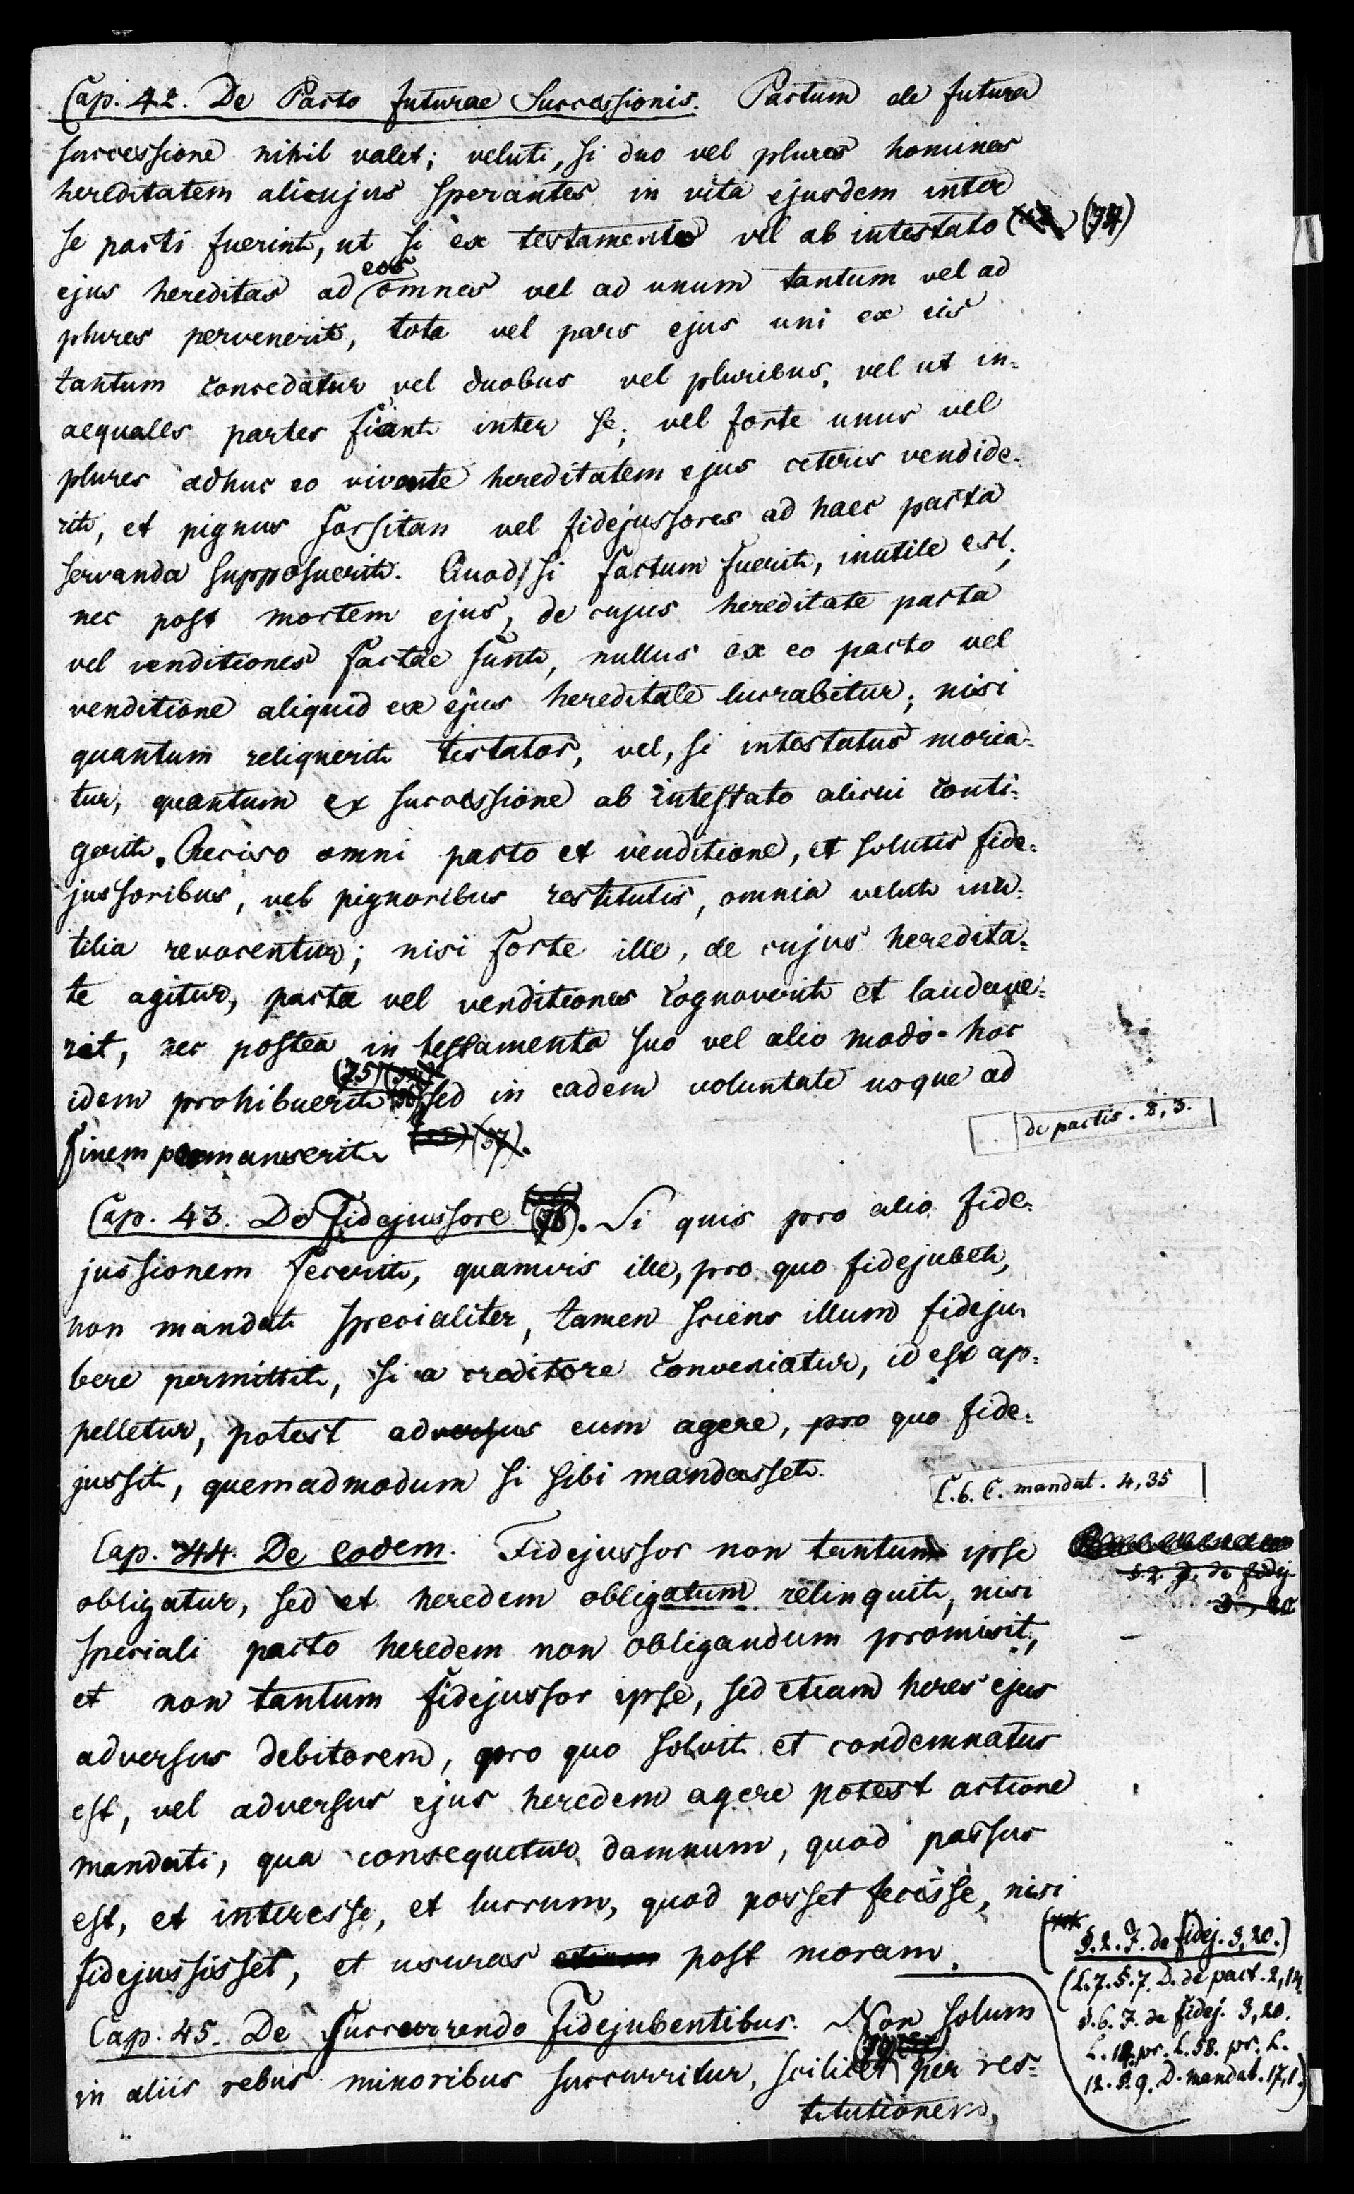 Cap. 42. De Pacto futurae Successionis. Pactum de futura
successione nihil valet; veluti, si duo vel plures homines
hereditatem alicujus sperantes in vita ejusdem inter
se pacti fuerint, ut si ex testamento vel ab intestato (74)
eos
ejus hereditas ad omnes vel ad unum tantum vel ad
plures pervenerit, tota vel pars ejus uni ex eis
tantum concedatur vel duobus vel pluribus, vel ut in=
aequales partes fiant inter se; vel forte unus vel
plures adhuc eo vivente hereditatem ejus ceteris vendide=
rit, et pignus forsitan vel fidejussores ad haec pacta
servanda supposuerit. Quod si factum fuerit, inutile est;
nec post mortem ejus, de cujus hereditate pacta
vel venditiones factae sunt, nullus ex eo pacto vel
venditione aliquid ex ejus hereditate lucrabitur; nisi
quantum reliquerit testator, vel, si intestatus moria=
tur, quantum ex successione ab intestato alicui conti=
gerit. Reciso omni pacto et venditione, et solutis fide=
jussoribus, vel pignoribus restitutis, omnia veluti inu=
tilia revocentur; nisi forte ille, de cujus heredita=
te agitur, pacta vel venditiones cognoverit et laudave=
rit, nec postea in testamento suo vel alio modo hoc
(75)
idem prohibuerit sed in eadem voluntate usque ad
finem permanserit (37).
de pactis. 2, 3.
Cap. 43. De Fidejussore (76). Si quis pro alio fide=
jussionem fecerit, quamvis ille, pro quo fidejubet,
non mandat specialiter, tamen sciens illum fideju=
bere permittit, si a creditore conveniatur, id est ap=
pelletur, potest adversus eum agere, pro quo fide=
jussit, quemadmodum si sibi mandasset.
L. 6. C. mandat. 4, 35
Cap. 44. De eodem. Fidejussor non tantum ipse
obligatur, sed et heredem obligatum relinquit, nisi
§. 2. J. de fidej.
3, 20
speciali pacto heredem non obligandum promisit,
et non tantum fidejussor ipse, sed etiam heres ejus
adversus debitorem, pro quo solvit et condemnatus
est, vel adversus ejus heredem agere potest actione
mandati, qua consequetur damnum, quod passus
est, et interesse, et lucrum, quod posset fecisse, nisi
fidejussisset, et usuras etiam post moram.
§. 2. J. de fidej. 3, 20.)
(L. 7. §. 7. D. de pact. 2, 14.
§. 6. J. de fidej. 3, 20.
L. 12. pr. L. 58. pr. L.
12. §. 9. D. mandat. 17, 1.)
Cap. 45. De Succurrendo Fidejubentibus. Non solum
in aliis rebus minoribus succurritur, scilicet per res=
titutionem,